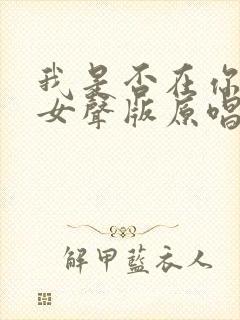 我是否在你
女聲版原唱
解甲藍衣人